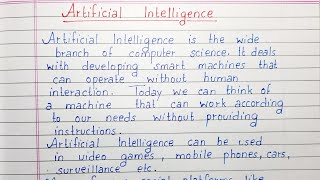 Artificial Intelligence
Artificial Intelligence is the wide
branch of computer science. It deals
with developing smart machines that
can operate without human
interaction. Today we can think of
a machine that can work according
to our needs without providing
instructions.
Artificial Intelligence can be used
in video games, mobile phones, cars,
surveillance etc.